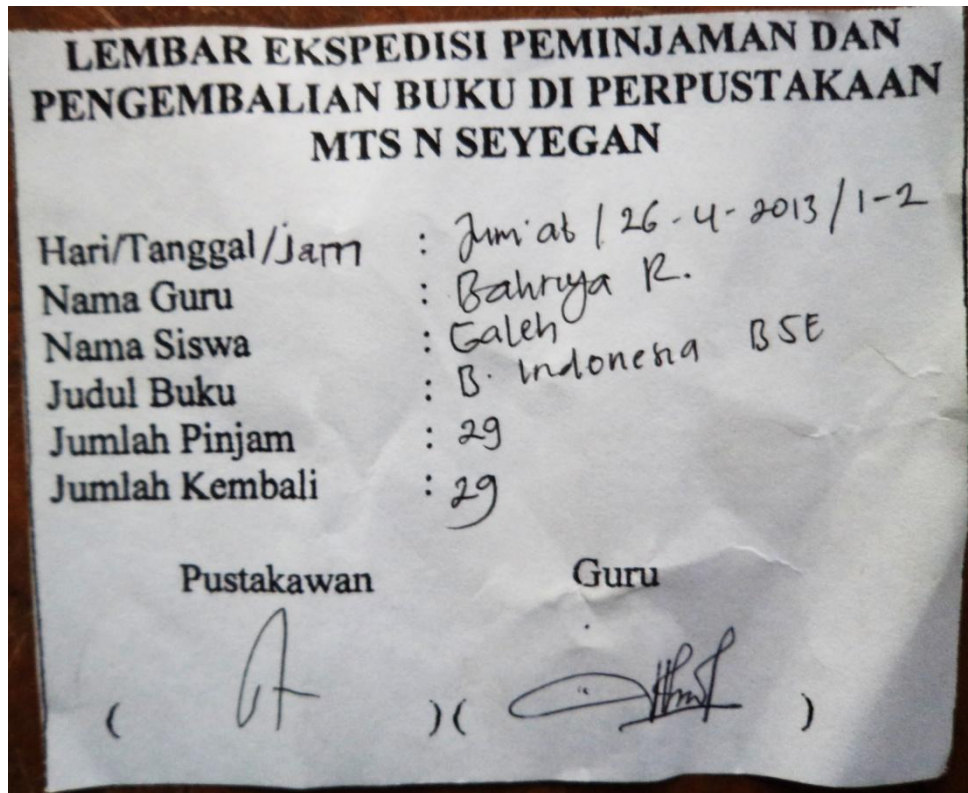 LEMBAR EKSPEDISI PEMINJAMAN DAN
PENGEMBALIAN BUKU DI PERPUSTAKAAN
MTS N SEYEGAN
Hari/Tanggal/Jam : Jum'at / 26-4-2013 / 1-2
Nama Guru : Bahruya R.
Nama Siswa : Galeh
Judul Buku : B. Indonesia BSE
Jumlah Pinjam : 29
Jumlah Kembali : 29
Pustakawan Guru
( )( )